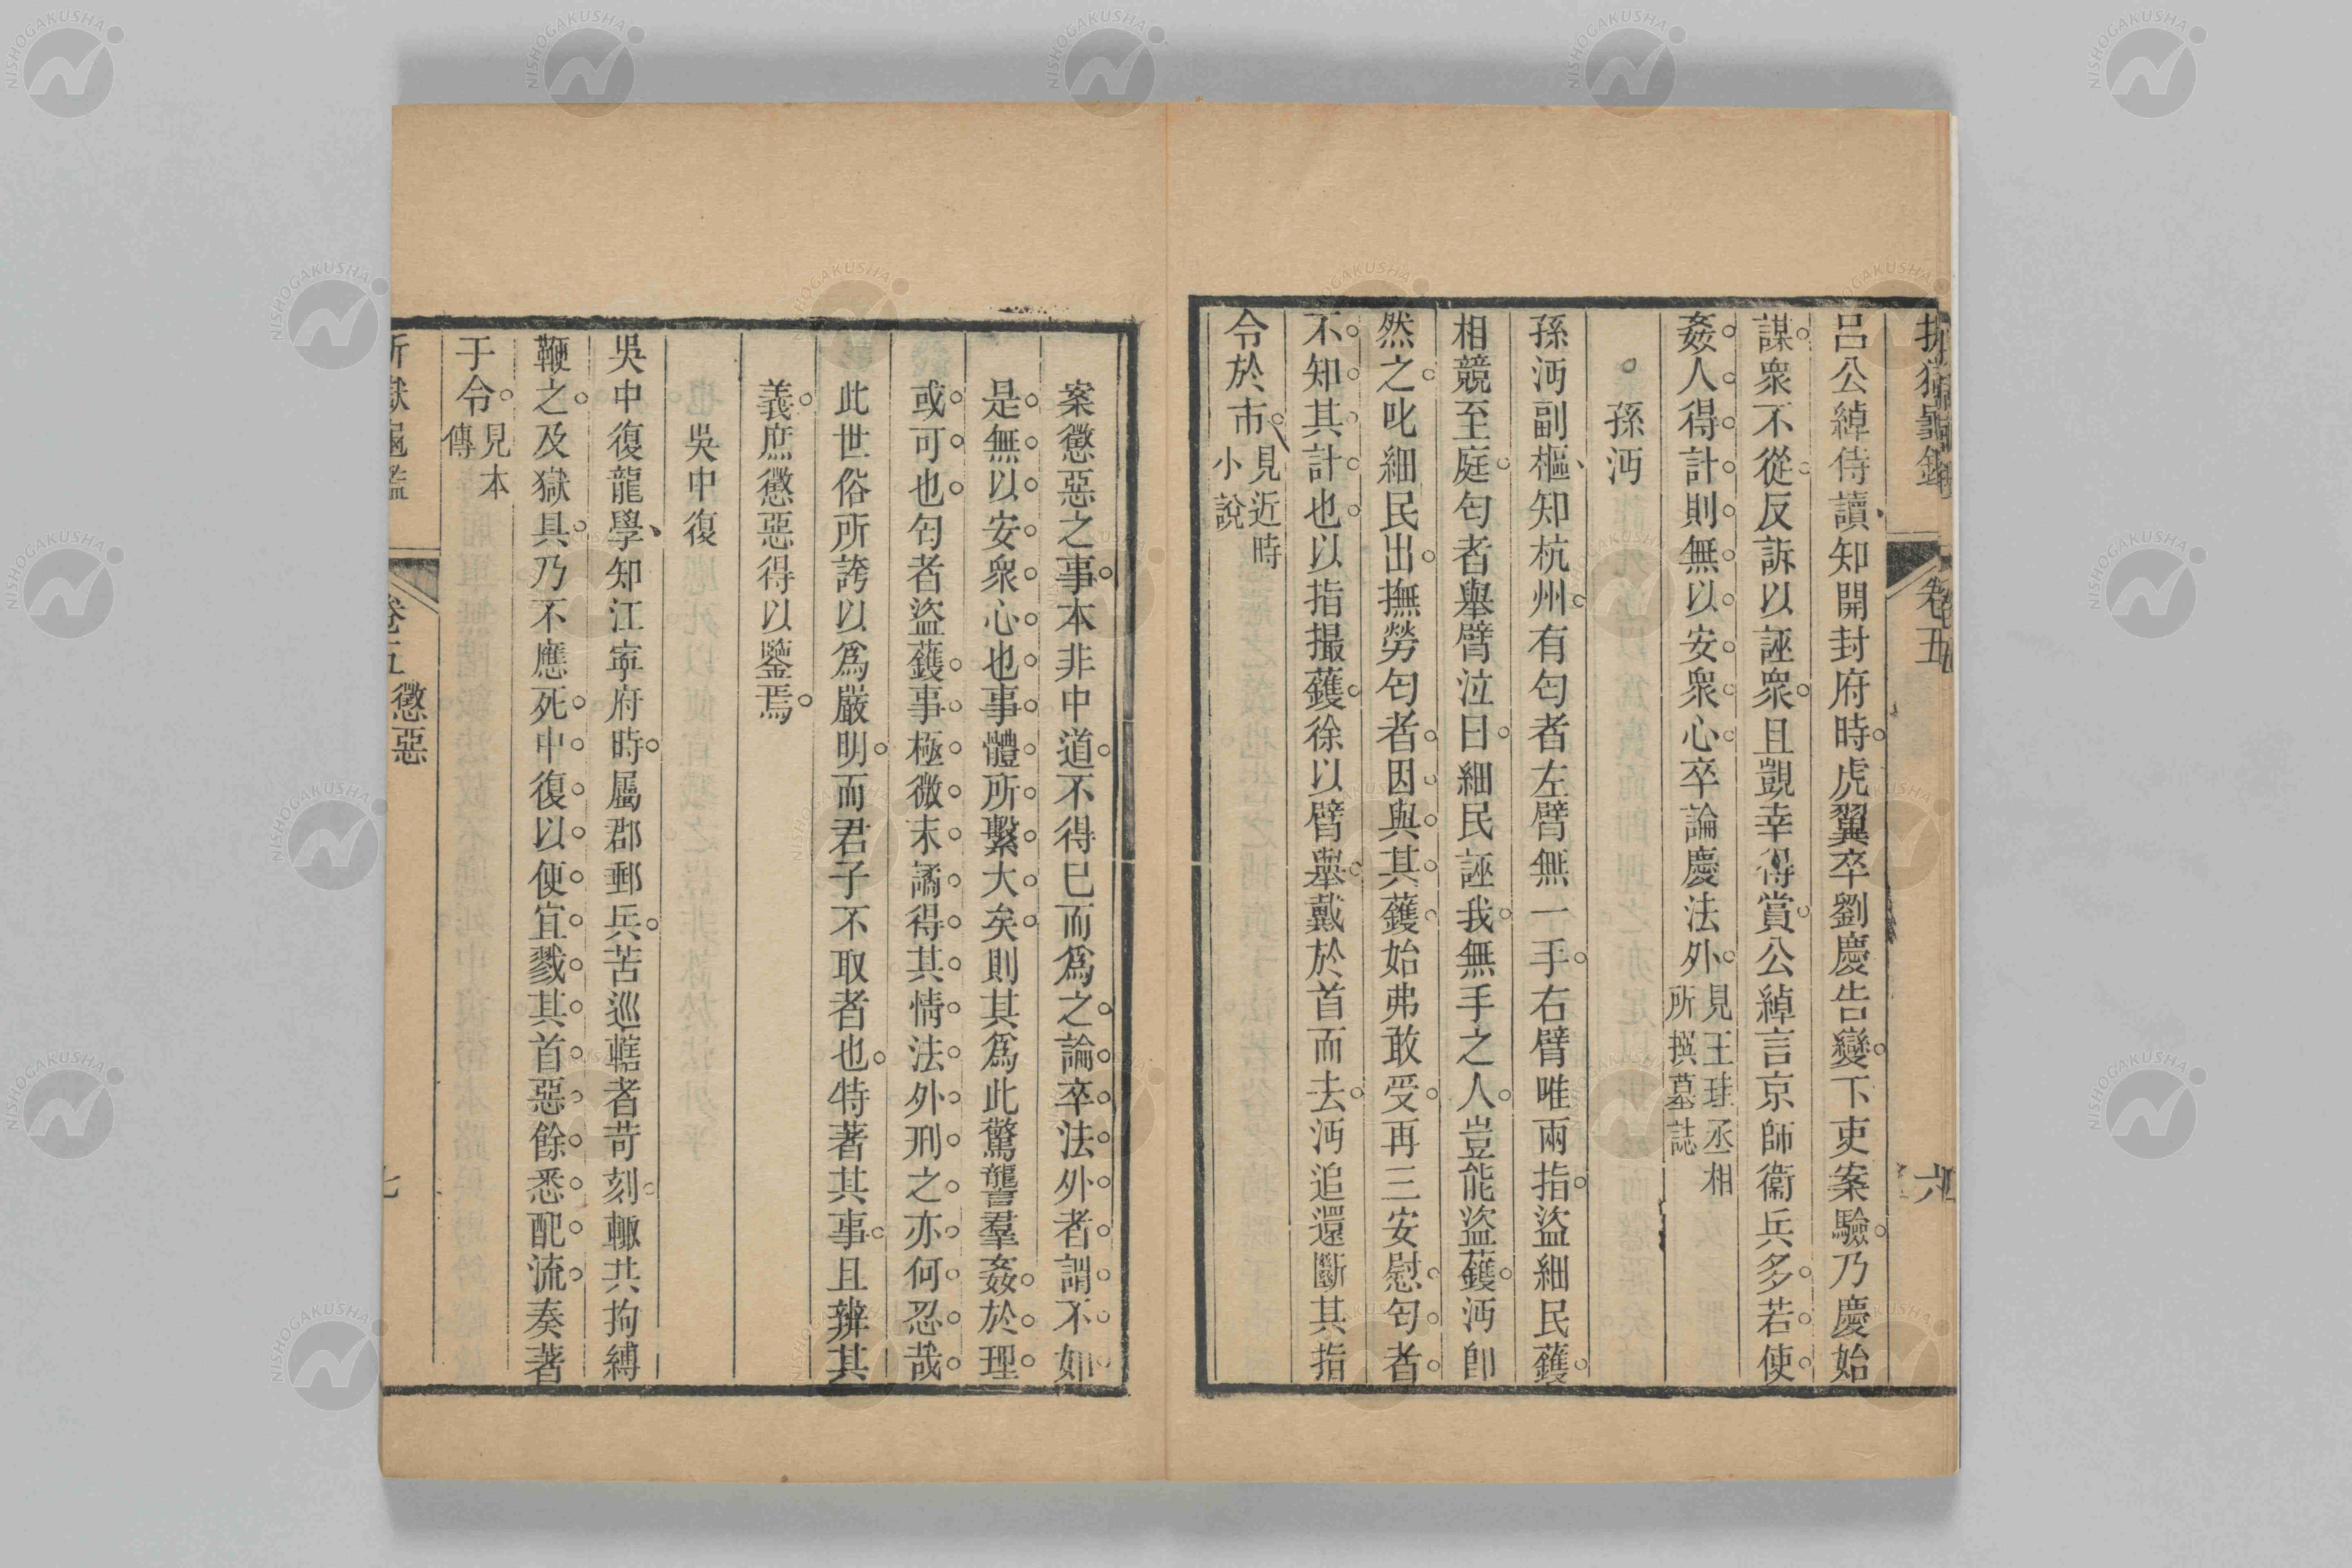 折獄龜鑑 卷五 六
呂公綽侍讀知開封府時虎翼卒劉慶告變下吏案驗乃慶始
謀衆不從反訴以誣衆且覬幸得賞公綽言京師衞兵多若使
姦人得計則無以安衆心卒論慶法外見王珪丞相所撰墓誌
孫沔
孫沔副樞知杭州有匄者左臂無一手右臂唯兩指盜細民䕶
相競至庭匄者舉臂泣曰細民誣我無手之人豈能盜䕶沔卽
然之叱細民出撫勞匄者因與其䕶始弗敢受再三安慰匄者
不知其計也以指撮䕶徐以臂舉戴於首而去沔追還斷其指
令於市見近時小說
案懲惡之事本非中道不得已而爲之論卒法外者謂不如
是無以安衆心也事體所繫大矣則其爲此驚讋羣姦於理
或可也匄者盜䕶事極微末譎得其情法外刑之亦何忍哉
此世俗所誇以爲嚴明而君子不取者也特著其事且辨其
義庶懲惡得以鑒焉
吳中復
吳中復龍學知江寧府時屬郡郵兵苦巡轄者苛刻輒共拘縛
鞭之及獄具乃不應死中復以便宜戮其首惡餘悉配流奏著
于令見本傳
折獄龜鑑 卷五 懲惡 七
NISHOGAKUSHA